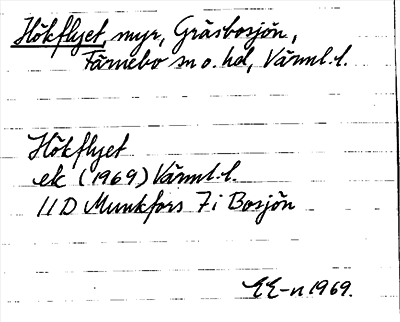 Hökflyet, myr, Gräsbosjön,
Färnebo sn o. hd, Värml. l.
Hökflyet
ek (1969) Värml. l.
11D Munkfors 7i Bosjön
EE-n 1969.